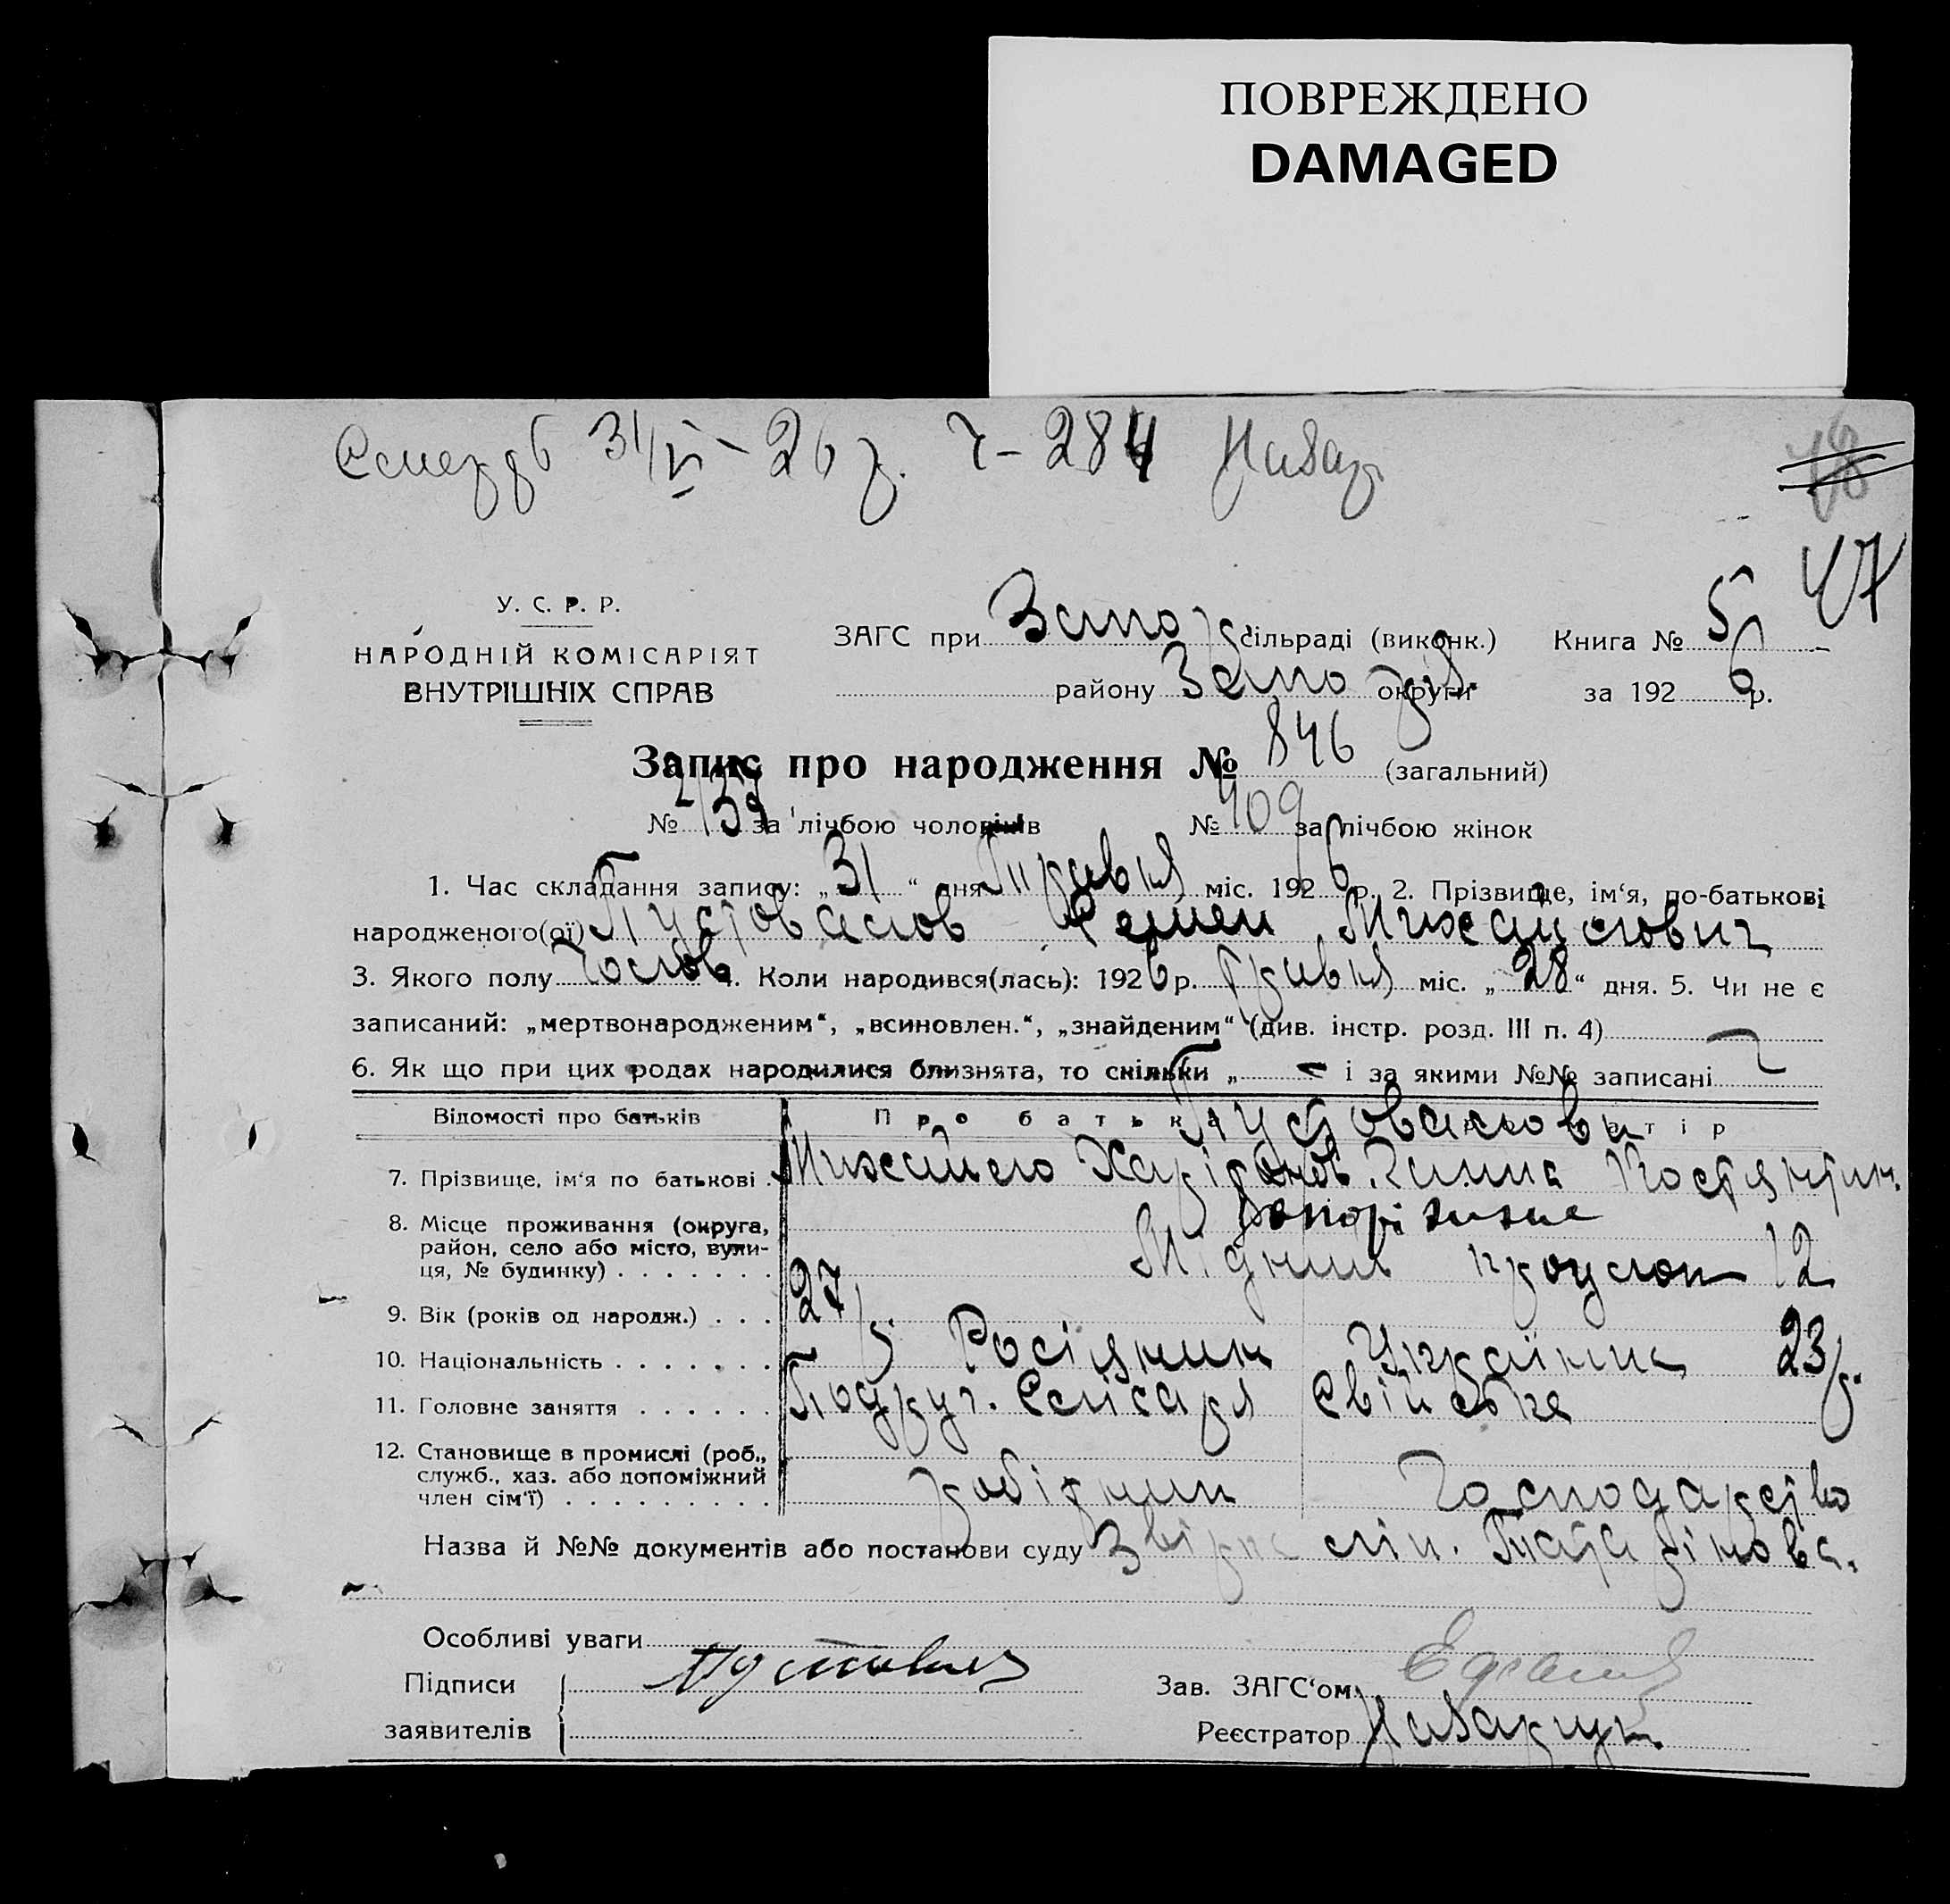 ПОВРЕЖДЕНО
DAMAGED
31/VI-26 р. Ч-284 Назар.
47
У. С. Р. Р.
НАРОДНІЙ КОМІСАРІЯТ
ВНУТРІШНІХ СПРАВ
ЗАГС при Запор сільраді (виконк.) Книга № 5
району Запор округи за 1926 р.
Запис про народження № 846 (загальний)
№ за лічбою чоловіків № 409 за лічбою жінок
1. Час складання запису: „31“ дня Травня міс. 1926 р. 2. Прізвище, ім‘я, по-батькові
народженого(ої) Пустовалов Семен Михайлович
3. Якого полу Чолов 4. Коли народився(лась): 1926 р. Травня міс. „28“ дня. 5. Чи не є
записаний: „мертвонародженим“, „всиновлен.“, „знайденим“ (див. інстр. розд. III п. 4)
6. Як що при цих родах народилися близнята, то скільки „ - і за якими №№ записані
Відомості про батьків Про батька тір
Пустовалови
7. Прізвище, ім‘я по батькові Михайло Харітонов. Галина Костянтин.
8. Місце проживання (округа, район, село або місто, вулиця, № будинку) Запоріжжя
Мідний провулок 12
9. Вік (років од народж.) 27 р. 23 р.
10. Національність Росіянин Українка
11. Головне заняття Подруч. Слюсаря Свійське
12. Становище в промислі (роб., служб., хаз. або допоміжний член сім‘ї) робітник Господарство
Назва й №№ документів або постанови суду
Особливі уваги
Підписи
заявителів
Зав. ЗАГС‘ом
Реєстратор Назарчук